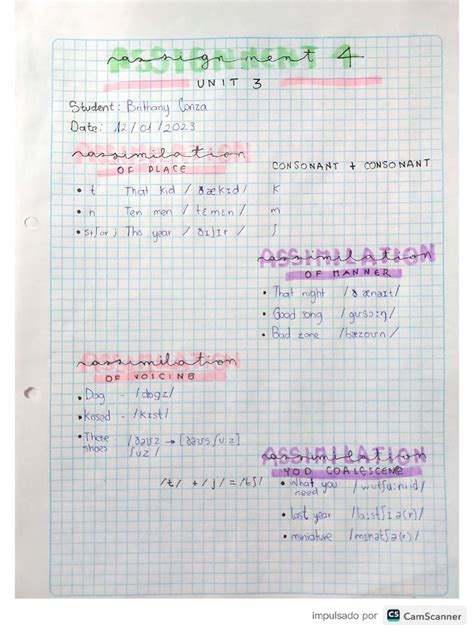 assignment 4
UNIT 3
Student: Brithany Conza
Date: 12/01/2023
assimilation
OF PLACE
CONSONANT + CONSONANT
• t That kid / ðækɪd/ K
• n Ten men / tɛmɛn/ m
• s+ʃ or j This year / ðɪʃɪr / ʃ
ASSIMILATION
OF MANNER
• That night /ðænaɪt/
• Good song /gʊsɔːŋ/
• Bad zone /bæzoʊn/
assimilation
OF VOICING
• Dog - /dɒgz/
• Kased - /kɪst/
• Those shoes - /ðəʊz ʃuz/ → [ðəʊsʃuz]
ASSIMILATION
YOD COALESCENE
/t/ + /j/ = /tʃ/
• What you need /wutʃuːniːd/
• last year /laːstʃɪə(r)/
• miniature /mɪnətʃə(r)/
impulsado por CS CamScanner